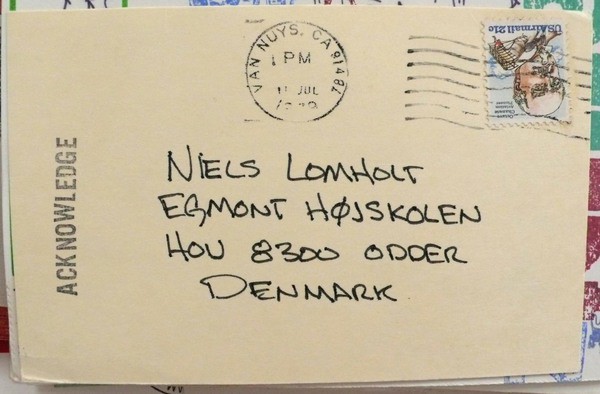 VAN NUYS, CA 91482
1 PM
11 JUL
USAirmail 21c
Octave
Chanute
Aviation
Pioneer
ACKNOWLEDGE
NIELS LOMHOLT
EGMONT HØJSKOLEN
HOU 8300 ODDER
DENMARK